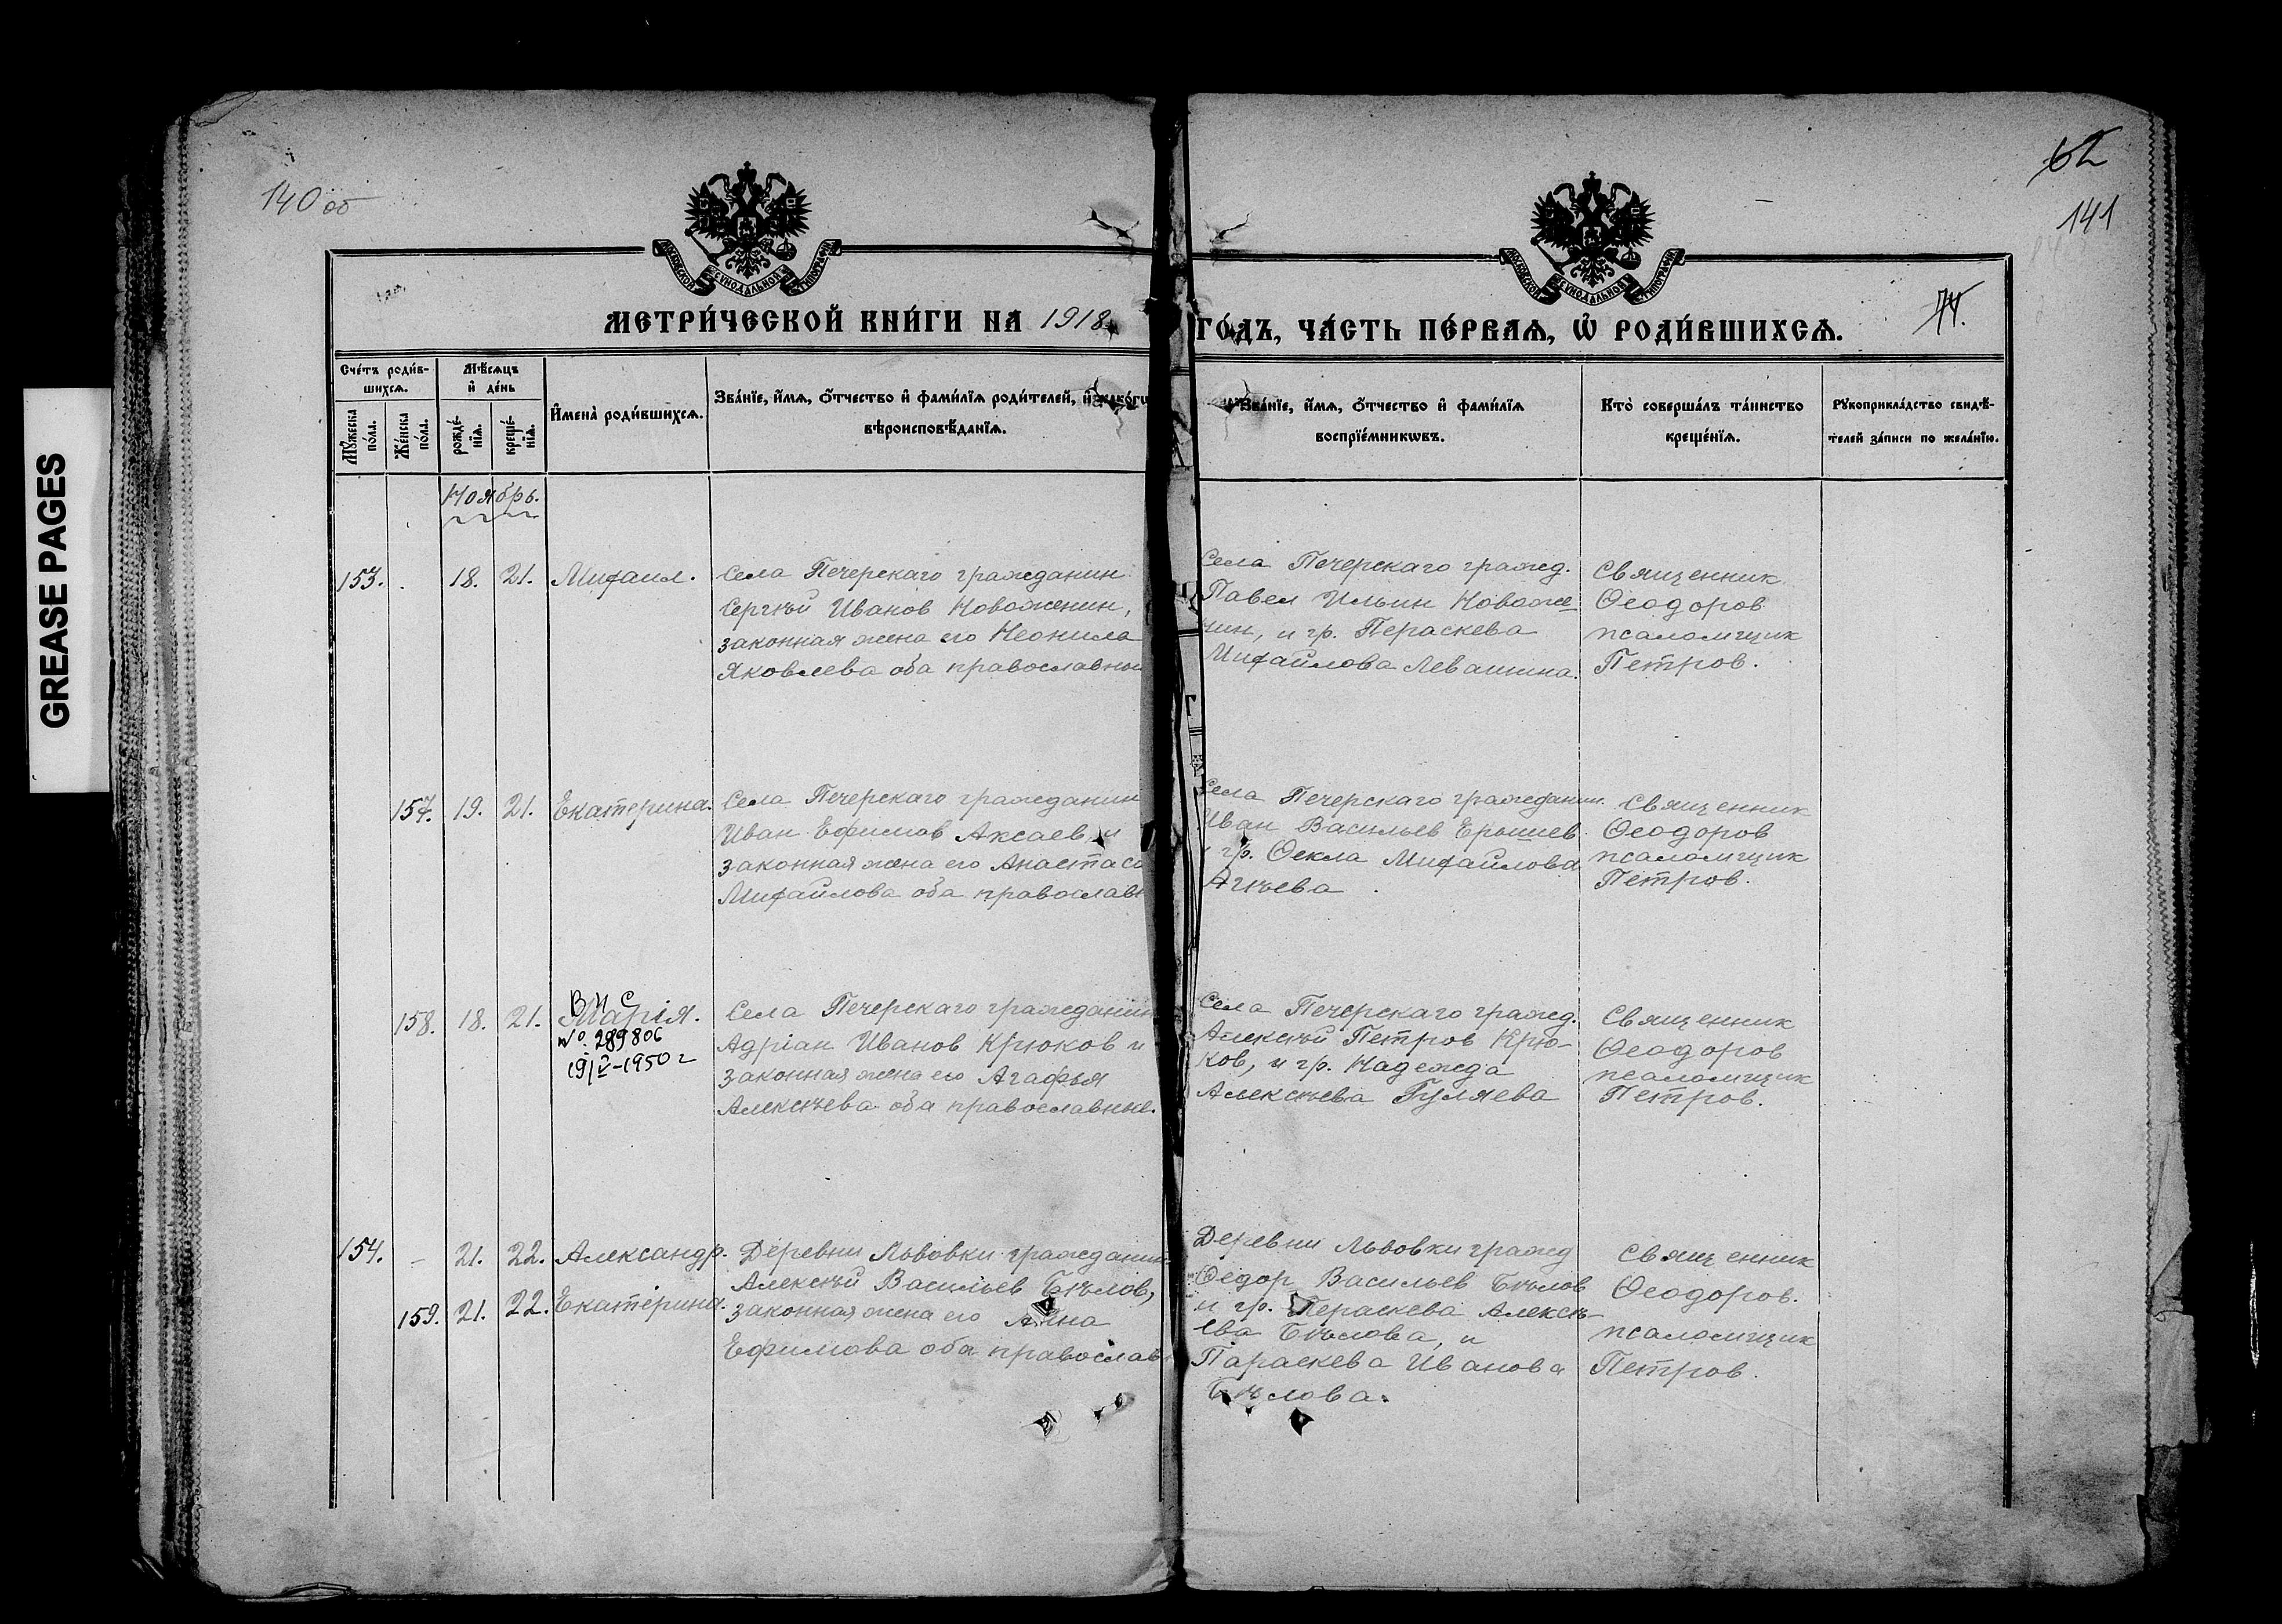 GREASE PAGES
140 об
62
141
МОСКОВСКОЙ СѴНОДАЛЬНОЙ ТИПОГРАФІИ
МОСКОВСКОЙ СѴНОДАЛЬНОЙ ТИПОГРАФІИ
МЕТРИ́ЧЕСКОЙ КНИ́ГИ НА 1918
ГО́ДЪ, ЧА́СТЬ ПЕ́РВАѦ, Ѡ҆ РОДИ́ВШИХСѦ.
Сче́тъ роди́в-
шихсѧ.
Мꙋ́жеска
по́ла.
Же́нска
по́ла.
Мѣ́сѧцъ
и҆ де́нь
рожде́-
нїѧ.
креще́-
нїѧ.
И҆мена̀ роди́вшихсѧ.
Зва́нїе, и҆́мѧ, ѻ҆́тчество и҆ фами́лїѧ роди́телей, и҆ како́гѡ
вѣроисповѣ́данїѧ.
Зва́нїе, и҆́мѧ, ѻ҆́тчество и҆ фами́лїѧ
воспрїе́мникѡвъ.
Кто̀ соверша́лъ та́инство
креще́нїѧ.
Рꙋкоприкла́дство свидѣ́-
телей за́писи по жела́нїю.
Ноябрь.
153. 18. 21. Михаил.
Села Печерскаго гражданин
Сергѣй Иванов Новоженин,
законная жена его Неонила
Яковлева оба православны
Села Печерскаго гражд.
Павел Ильин Новоже-
нин, и гр. Пераскева
Михайлова Левашина.
Священник
Ѳеодоров
псаломщик
Петров.
157. 19. 21. Екатерина.
Села Печерскаго гражданин
Иван Ефимов Аксаев, и
законная жена его Анастаси
Михайлова оба православн
Села Печерскаго гражданин.
Иван Васильев Ерышев
гр. Ѳекла Михайлова
Агѣева
Священник
Ѳеодоров
псаломщик
Петров.
158. 18. 21. Марія.
№ 289806
19/V-1950 г
Села Печерскаго гражданин
Адріан Иванов Крюков и
законная жена его Агафья
Алексѣева оба православные.
Села Печерскаго гражд.
Алексѣй Петров Крю-
ков, и гр. Надежда
Алексѣева Гуляева
Священник
Ѳеодоров
псаломщик
Петров.
154. - 21. 22. Александр.
159. 21. 22. Екатерина.
Деревни Львовки гражданин
Алексѣй Васильев Бѣлов,
законная жена его Анна
Ефимова оба православ
Деревни Львовки гражд
Ѳедор Васильев Бѣлов
и гр. Пераскева Алексѣ-
ева Бѣлова, и
Параскева Иванова
Бѣлова.
Священник
Ѳеодоров.
псаломщик
Петров.